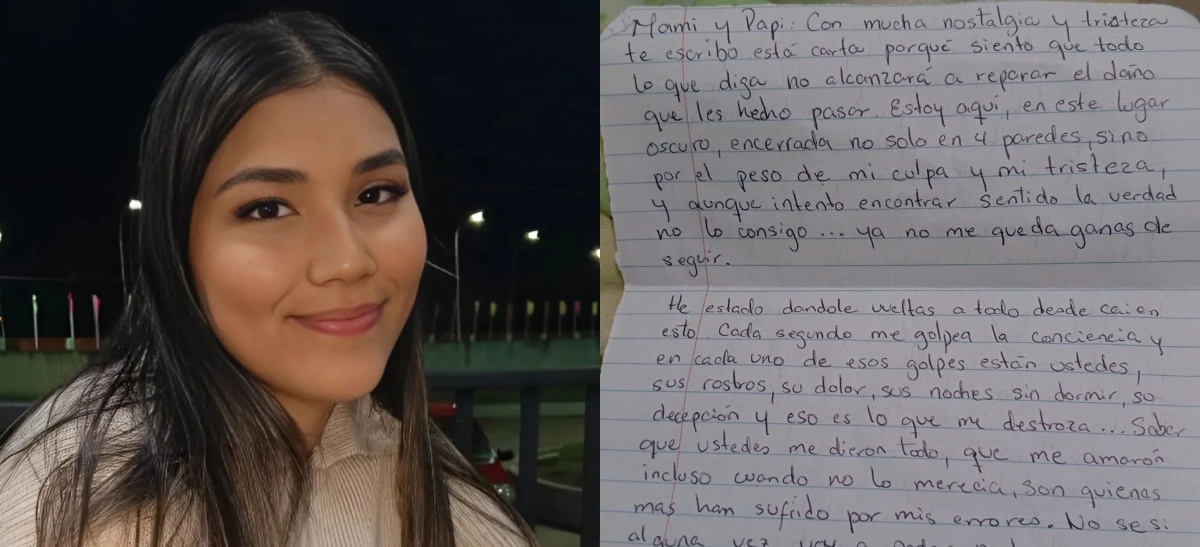 Mami y Papi: Con mucha nostalgia y tristeza
te escribo está carta porqué siento que todo
lo que diga no alcanzará a reparar el daño
que les hecho pasar. Estoy aquí, en este lugar
oscuro, encerrada no solo en 4 paredes, sino
por el peso de mi culpa y mi tristeza,
y aunque intento encontrar sentido la verdad
no lo consigo... ya no me queda ganas de
seguir.
He estado dandole vueltas a todo desde cai en
esto. Cada segundo me golpea la conciencia y
en cada uno de esos golpes están ustedes,
sus rostros, su dolor, sus noches sin dormir, su
decepción y eso es lo que me destroza... Saber
que ustedes me dieron todo, que me amarón
incluso cuando no lo merecia, son quienes
mas han sufrido por mis errores. No se si
alguna vez voy a